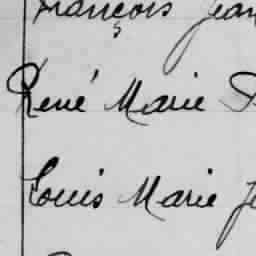 François Jean
René Marie
Louis Marie